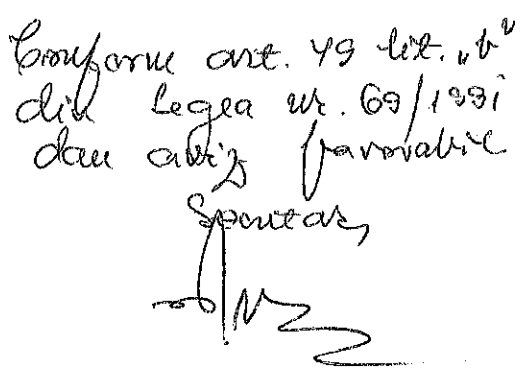 Conform art. 49 lit. „b"
din Legea nr. 69/1991
dau aviz favorabil
Secretar,